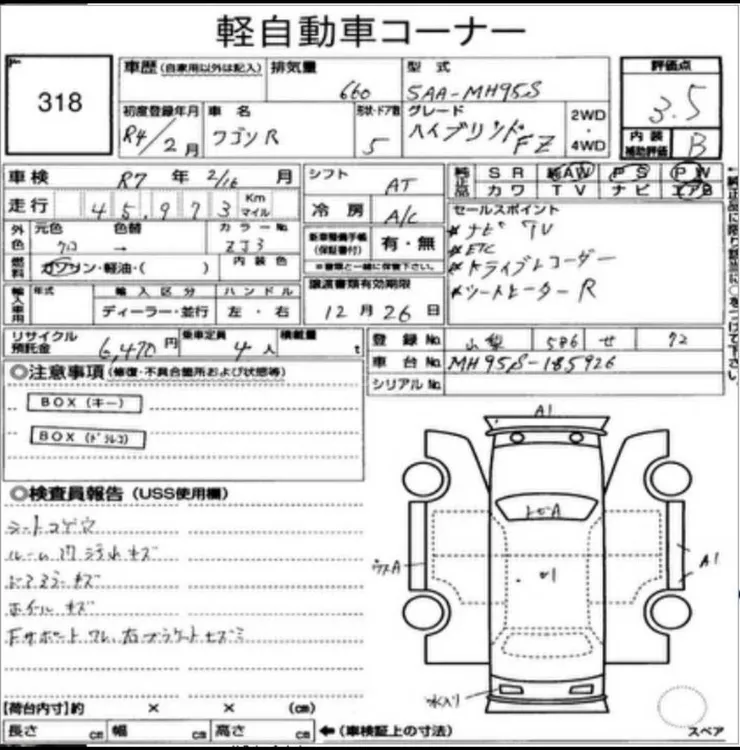 軽自動車コーナー
318
車歴(自家用以外は記入)
排気量
660
型式
5AA-MH95S
評価点
3.5
初度登録年月
R4/2月
車名
ワゴンR
形状・ドア数
5
グレード
ハイブリッドFZ
2WD
・
4WD
内装
補助評価
B
車検 R7年 2/16月
走行 45,973 Km マイル
シフト AT
冷房 A/C
純正品
SR 純AW PS PW
カワ TV ナビ エアB
外色
元色 クロ
色替 →
カラーNo. ZJ3
燃料 ガソリン・軽油・( )
内装色
新車整備手帳
(保証書付)
有・無
※書類と一緒に保管下さい。
セールスポイント
*ナビ TV
*ETC
*ドライブレコーダー
*シートヒーターR
輸入車用
年式
輸入区分
ハンドル
ディーラー・並行
左・右
譲渡書類有効期限
12月26日
リサイクル
預託金
6,470円
乗車定員
4人
積載量
t
登録No. 山梨 586 せ 72
車台No. MH95S-185926
シリアルNo.
◎注意事項(修復・不具合箇所および状態等)
BOX(キー)
BOX(ドラレコ)
◎検査員報告(USS使用欄)
シートコゲ穴
ルーム内汚れキズ
ドアミラーキズ
ホイールキズ
Fサポートワレ、右ブラケットヒズミ
A1
トビA
ウスA
A1
水入り
【荷台内寸】約 × × (cm)
長さ cm 幅 cm 高さ cm
←(車検証上の寸法)
スペア